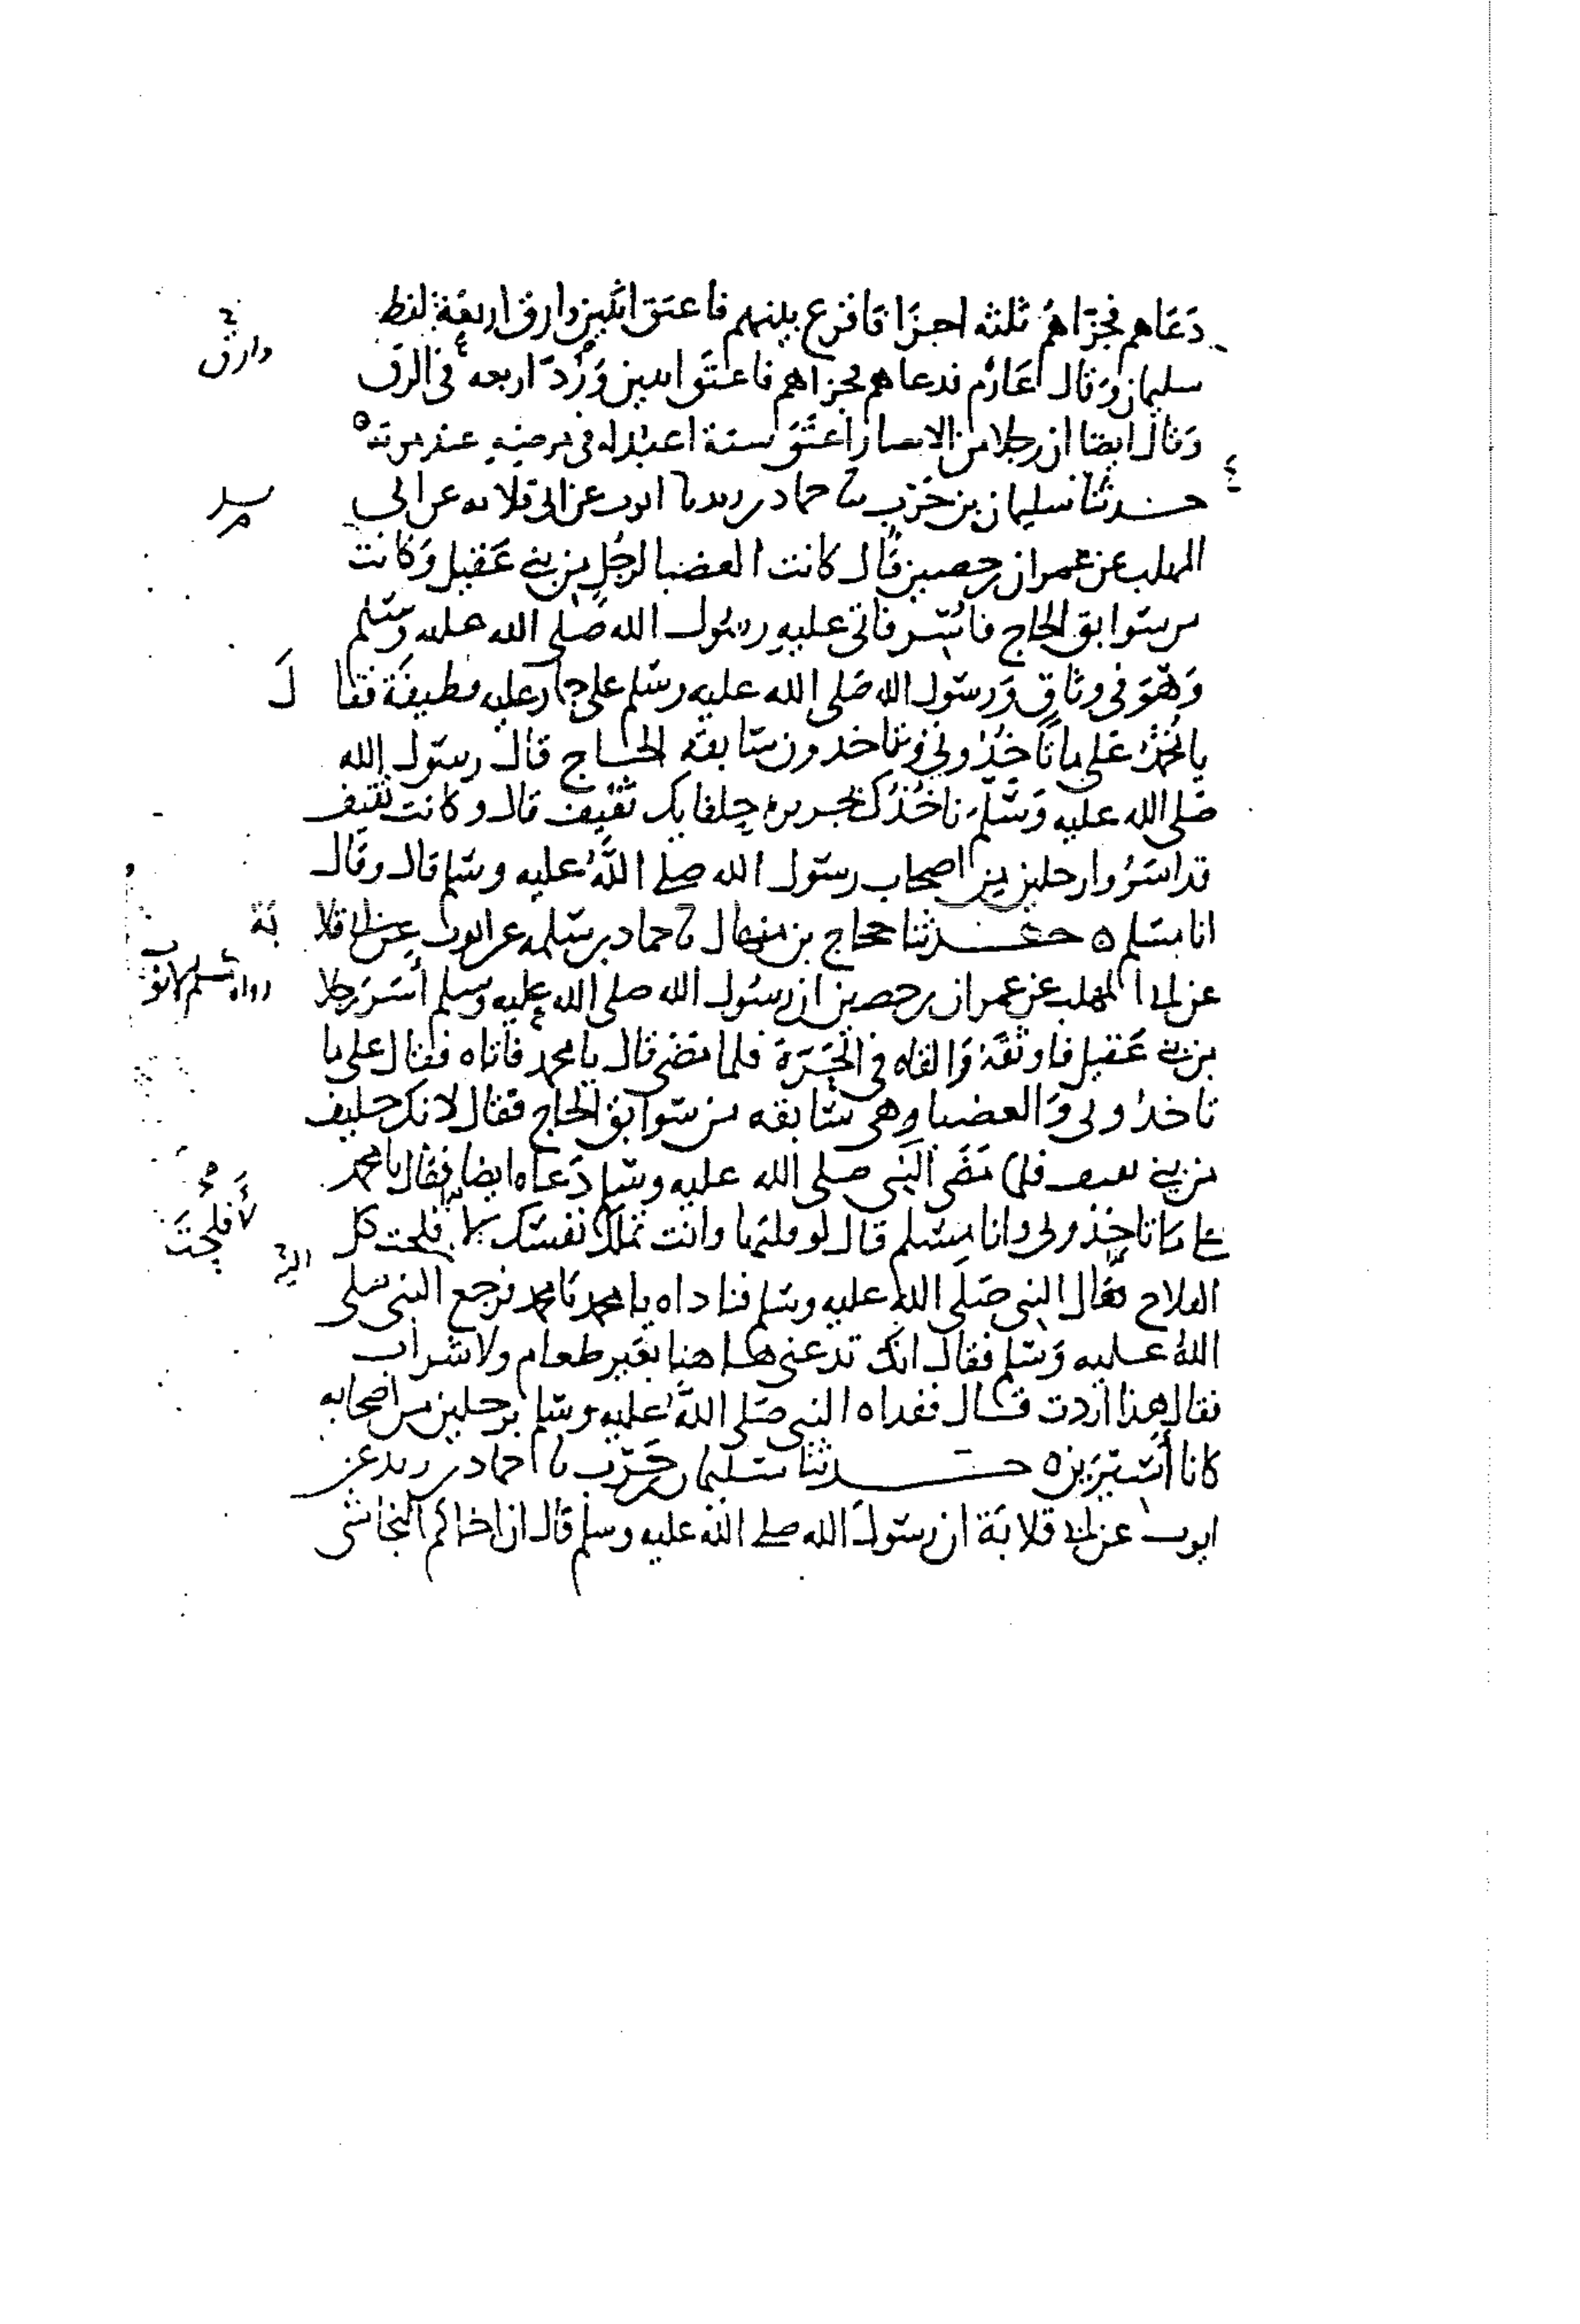 دعاهم فجزاهم ثلثه اجزا فاقرع بينهم فاعتق اثنين وارق اربعة لفظ
وارق
سليمان وقال عارم فدعاهم فجزاهم فاعتق اثنين ورد اربعه في الرق
وقال ايضا ان رجلا من الانصار اعتق ستة اعبد له في مرضه عند موته
حدثنا سليمان بن حرب ثنا حماد بن زيد ثنا ايوب عن ابي قلابه عن ابي
المهلب عن عمران بن حصين قال كانت العضبا لرجل من بني عقيل وكانت
من سوابق الحاج فاسر فاتى عليه رسول الله صلى الله عليه وسلم
وهو في وثاق ورسول الله صلى الله عليه وسلم على حمار عليه قطيفة فقال
يا محمد على ما تاخذوني وتاخذون سابقه الحاج قال رسول الله
صلى الله عليه وسلم ناخذك بجريره حلفايك ثقيف قال وكانت ثقيف
قد اسروا رجلين من اصحاب رسول الله صلى الله عليه وسلم قال وقال
انا مسلم ه حدثنا حجاج بن منهال ثنا حماد بن سلمه عن ايوب عن ابي قلا بة
عن ابي المهلب عن عمران بن حصين ان رسول الله صلى الله عليه وسلم أسر رجلا
رواه مسلم
من بني عقيل فاوثقه والقاه في الحرة فلما مضى قال يا محمد فاتاه فقال على ما
تاخذوني والعضبا وهي سابقه من سوابق الحاج فقال لانك حليف
من بني ثقيف فلما مضى النبي صلى الله عليه وسلم دعاه ايضا فقال يا محمد
على ما تاخذوني وانا مسلم قال لو قلتها وانت تملك نفسك فلحت كل
لأفلحت
الفلاح فقال النبي صلى الله عليه وسلم فناداه يا محمد يا محمد فرجع النبي صلى
الله عليه وسلم فقال انك تدعني هاهنا بغير طعام ولا شراب
فقال هذا اردت قال ففداه النبي صلى الله عليه وسلم برجلين من اصحابه
كانا أسيرين ه حدثنا سليمان بن حرب ثنا حماد بن زيد عن
ايوب عن ابي قلابة ان رسول الله صلى الله عليه وسلم قال ان اخاكم النجاشي